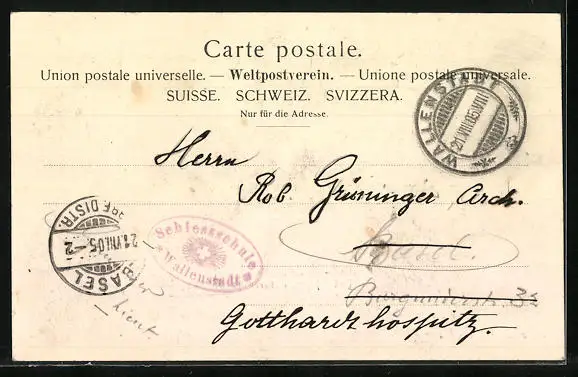 Carte postale.
Union postale universelle. — Weltpostverein. — Unione postale universale.
SUISSE. SCHWEIZ. SVIZZERA.
Nur für die Adresse.
WALLENSTADT
21.VIII.05.VIII
Herrn
Rob. Grüninger Arch.
BRF. DISTR.
21.VIII.05.-2
BASEL
Schiessschule
Wallenstadt
Basel.
Burgunderstr. 32
Gotthardshospitz.
Lieut.